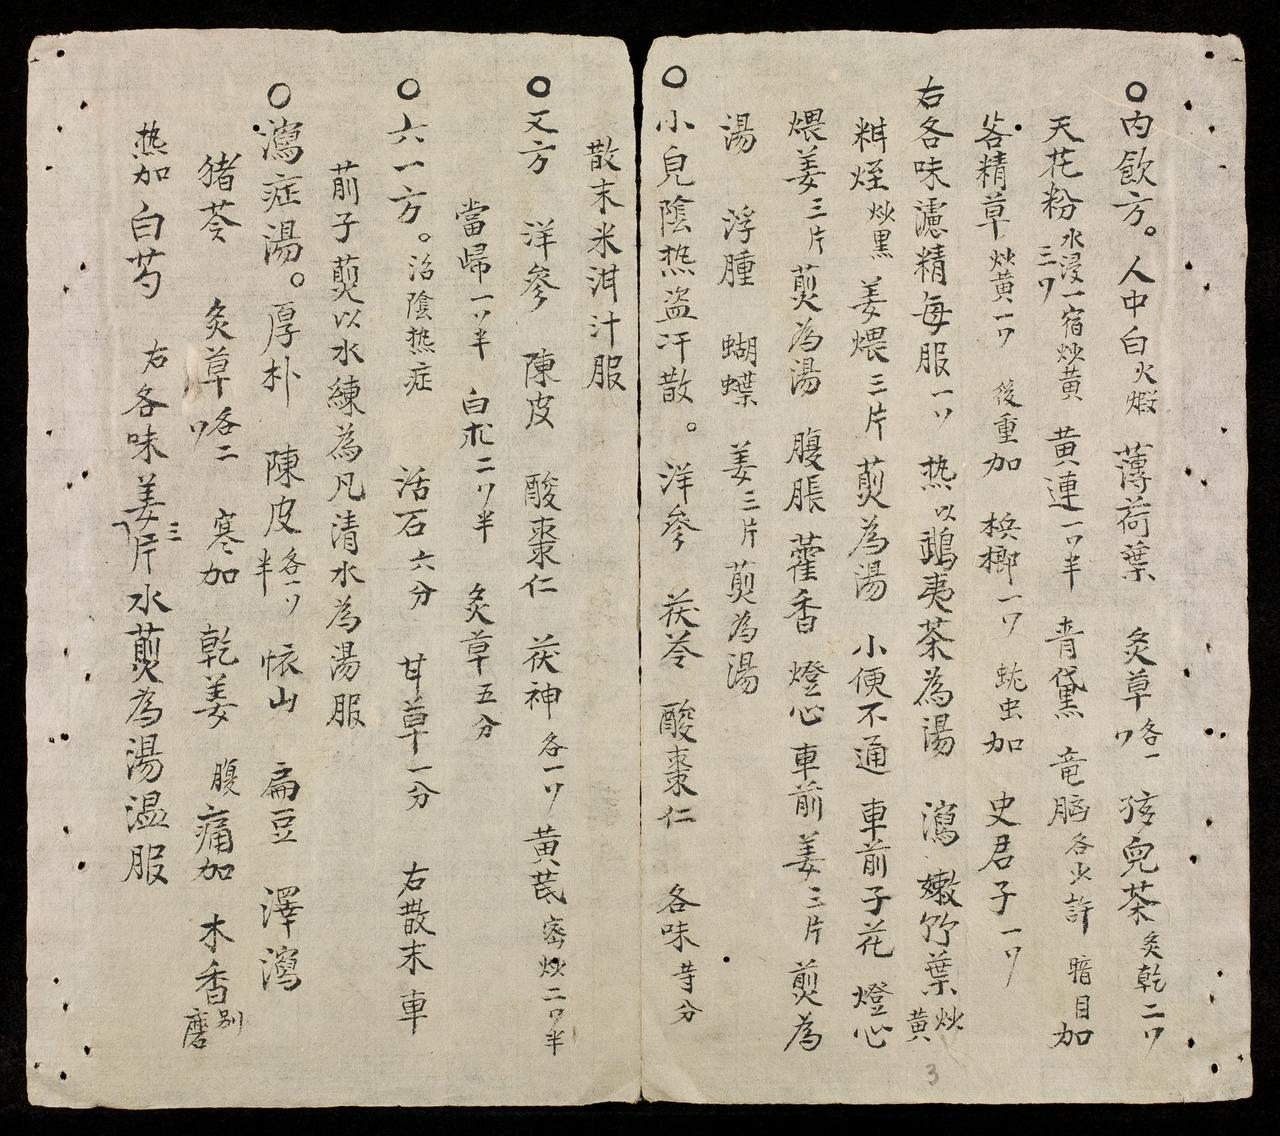 ○内飲方。人中白火煅 薄荷葉 炙草各一 孩兒茶炙乾二
天花粉水浸一宿炒黄三 黄連一半 青黛 竜脳各少許 暗目加
精草炒黄一 後重加 梹榔一 蚘虫加 史君子一
右各味濾精每服一 热以鵶夷茶為湯 瀉嫩竹葉炒黄
炒黑 姜煨三片 煎為湯 小便不通 車前子花 燈心
煨姜三片煎為湯 腹脹 藿香 燈心車前姜三片煎為
湯 浮腫 蝴蝶 姜三片煎為湯
○小兒陰热盗汗散。洋參 茯苓 酸棗仁 各味等分
散末米泔汁服
○又方 洋參 陳皮 酸棗仁 茯神各一 黄芪密炒二半
當歸一半 白朮二半 炙草五分
○六一方。治陰热症 活石六分 甘草一分 右散末車
前子煎以水練為凡清水為湯服
○瀉症湯。厚朴 陳皮各一半 怀山 扁豆 澤瀉
猪苓 炙草各二 寒加 乾姜 腹痛加 木香別磨
热加白芍 右各味姜三片水煎為湯温服
3